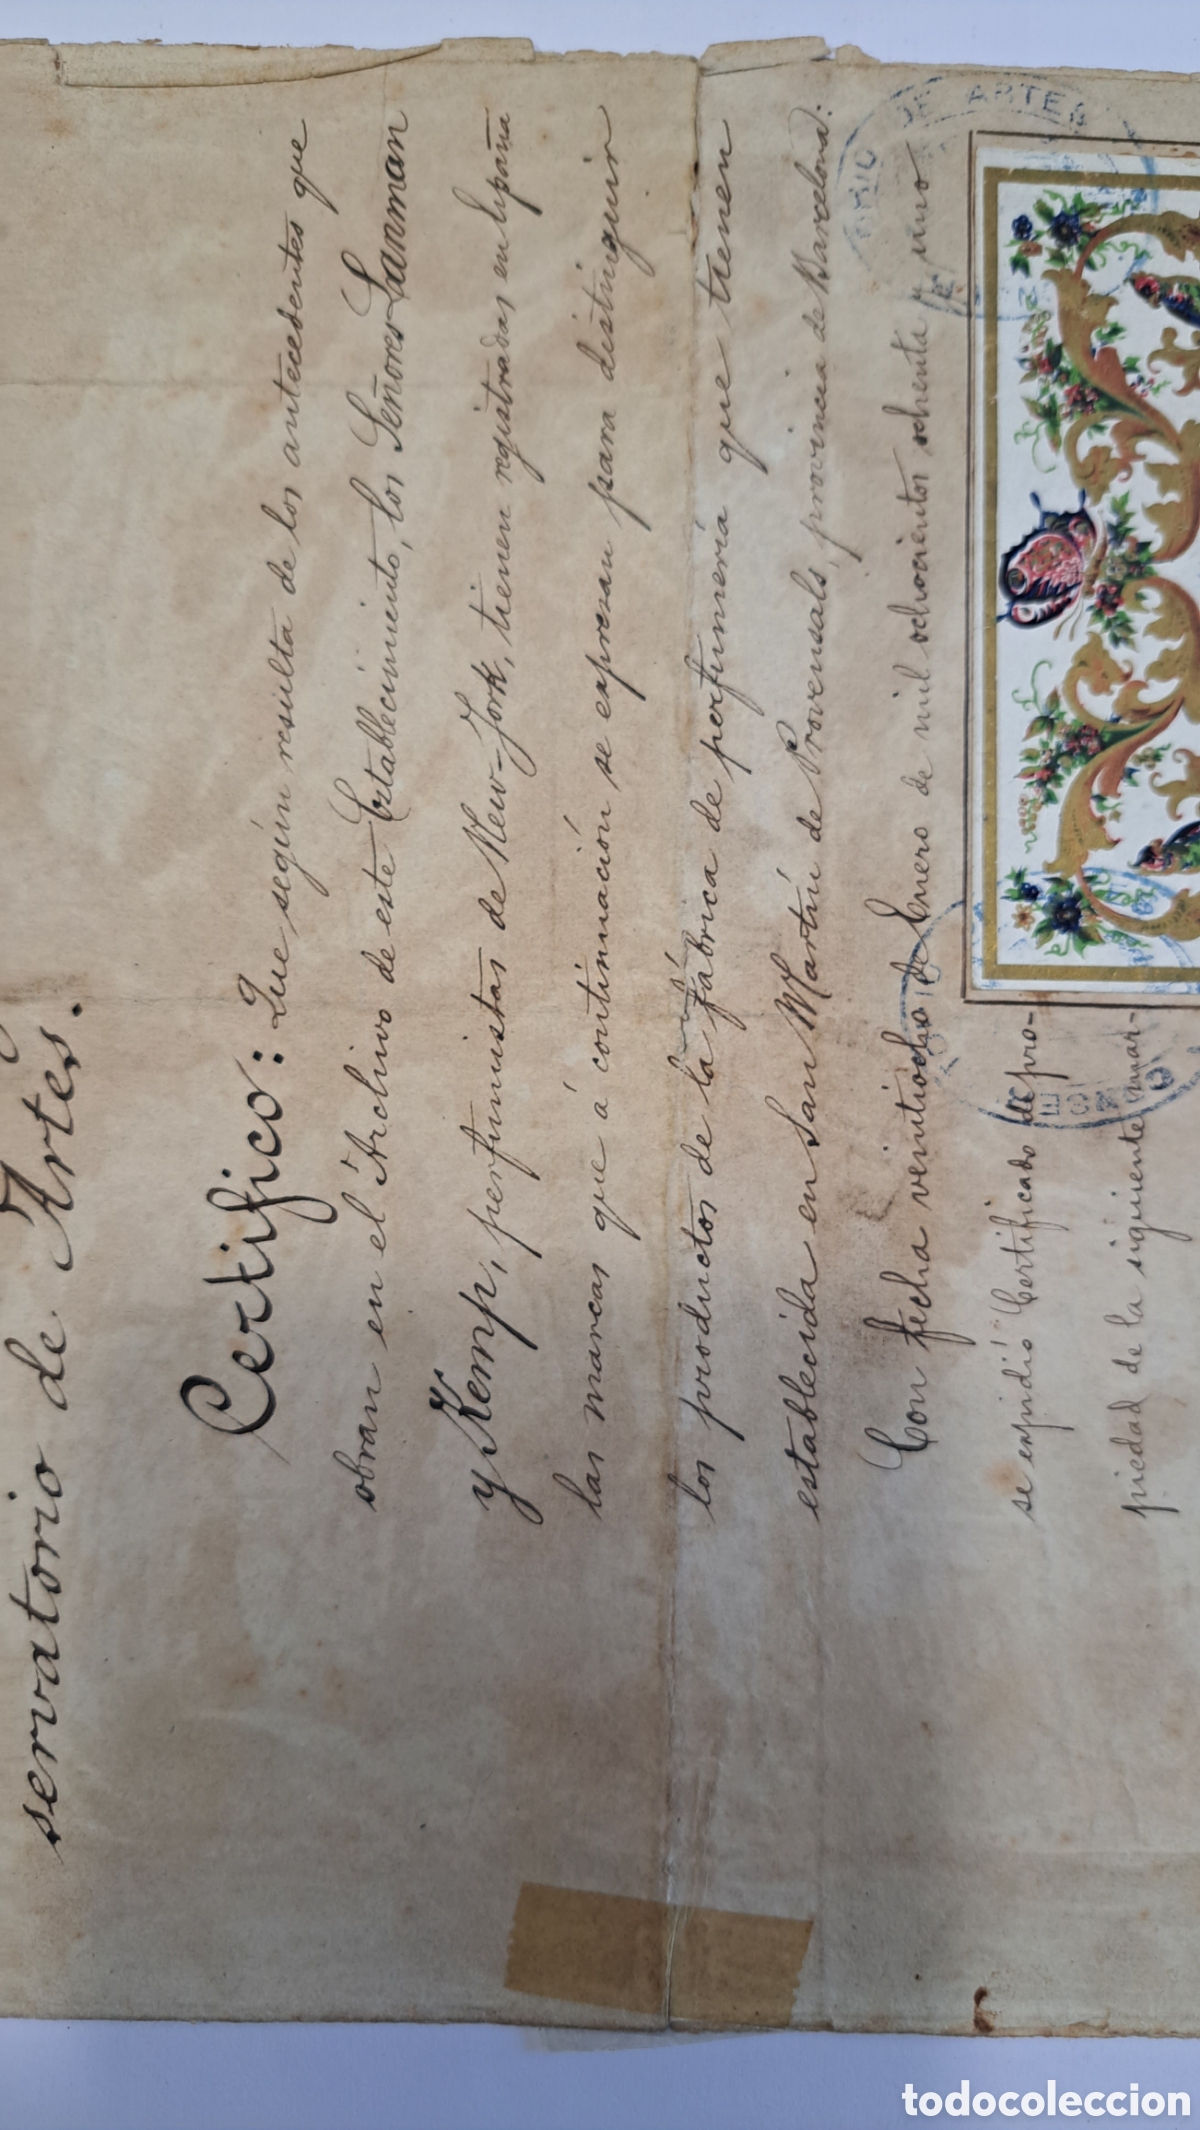 servatorio de Artes.
Certifico: Que según resulta de los antecedentes que
obran en el Archivo de este Establecimiento, los Señores Lanman
y Kemp, perfumistas de New-York, tienen registradas en España
las marcas que á continuación se expresan para distinguir
los productos de la fábrica de perfumería que tienen
establecida en San Martín de Provensals, provincia de Barcelona:
Con fecha veintiocho de Enero de mil ochocientos ochenta y uno
se expidió Certificado de pro-
piedad de la siguiente mar-
DE ARTES
todocoleccion